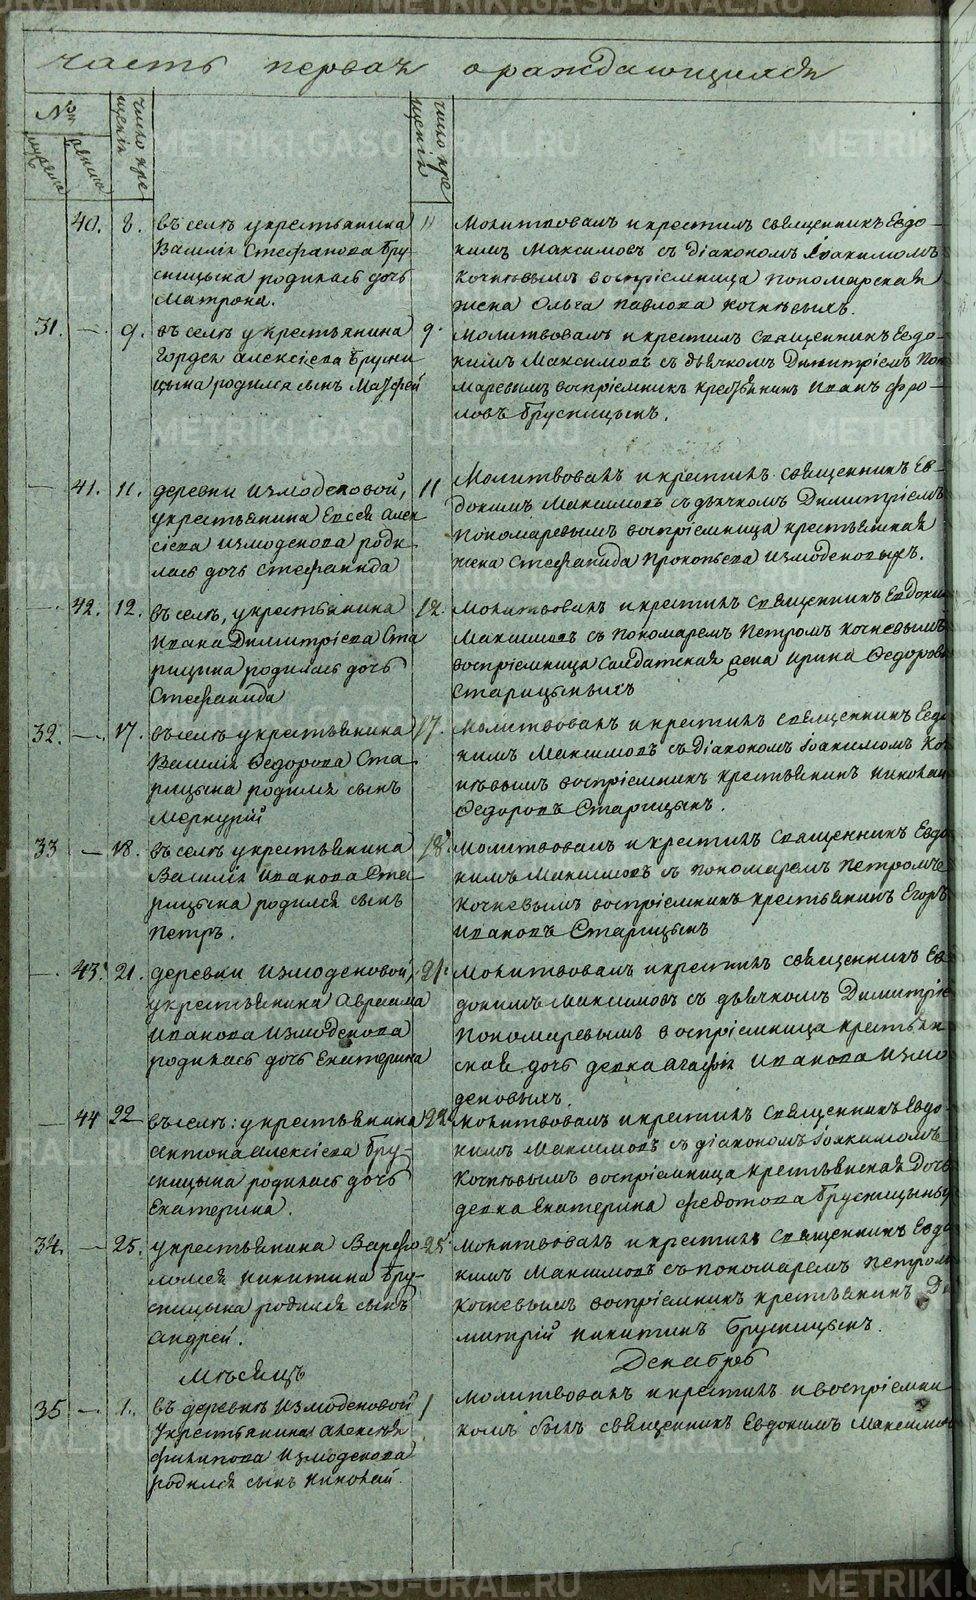 часть первая о раждающихся
№
мужска
женска
число кре
щенія
число кре
щенія
40. 8. въ селѣ у крестьянина
Василія Стефанова Бру
сницына родилась дочь
Матрона.
11 Молитвовалъ и крестилъ священникъ Евдо-
кимъ Максимовъ съ діакономъ Іоакимомъ
Кочнѣвымъ воспріемница пономарская
жена Ольга Павлова Кочнѣвыхъ.
31. — 9. въ селѣ у крестьянина
Гордея Алексіева Брусни
цына родился сынъ Матфей
9. Молитвовалъ и крестилъ священникъ Евдо-
кимъ Максимовъ съ дьячкомъ Димитріемъ Поно
маревымъ воспріемникъ крестьянинъ Иванъ Фро-
ловъ Брусницынъ.
— 41. 11. деревни Измоденовой,
у крестьянина Евсея Алек
сіева Измоденова роди
лась дочь Стефанида
11 Молитвовалъ и крестилъ священникъ Ев-
докимъ Максимовъ съ дьячкомъ Димитріемъ
Пономаревымъ воспріемница крестьянская
жена Стефанида Прокопьева Измоденовыхъ.
— 42. 12. въ селѣ, у крестьянина
Ивана Димитріева Ста
рицына родилась дочь
Стефанида
12. Молитвовалъ и крестилъ священникъ Евдоким
Максимовъ съ пономаремъ Петромъ Кочневымъ
воспріемница солдатская жена Ирина Ѳедорова
Старицыныхъ
32. — 17. въ селѣ у крестьянина
Василія Ѳедорова Ста
рицына родился сынъ
Меркурій
17. Молитвовалъ и крестилъ священникъ Евдо
кимъ Максимовъ съ діакономъ Іоакимомъ Коч
нѣвымъ воспріемникъ крестьянинъ Николай
Ѳедоровъ Старицынъ.
33 — 18. въ селѣ у крестьянина
Василія Иванова Ста
рицына родился сынъ
Петръ.
18. Молитвовалъ и крестилъ священникъ Евдо
кимъ Максимовъ съ пономаремъ Петромъ
Кочневымъ воспріемникъ крестьянинъ Егоръ
Ивановъ Старицынъ
— 43. 21. деревни Измоденовой,
у крестьянина Авраама
Иванова Измоденова
родилась дочь Екатерина
21. Молитвовалъ и крестилъ священникъ Ев
докимъ Максимовъ съ дьячкомъ Димитріе
Пономаревымъ воспріемница крестьян
ская дочь девка Агафья Иванова Измо
деновыхъ.
— 44 22 въ селѣ: у крестьянина
Антона Алексіева Бру-
сницына родилась дочь
Екатерина.
22 Молитвовалъ и крестилъ священникъ Евдо-
кимъ Максимовъ съ діакономъ Іоакимомъ
Кочнѣвымъ воспріемница крестьянская дочь
девка Екатерина Федотова Брусницыных
34. — 25. у крестьянина Варфо
ломея Никитина Бру-
сницына родился сынъ
Андрей.
25 Молитвовалъ и крестилъ священникъ Евдо
кимъ Максимовъ съ пономаремъ Петромъ
Кочневымъ воспріемникъ крестьянинъ Ди
митрій Никитинъ Брусницынъ.
Мѣсяцъ Декабрь
35 — 1. въ деревнѣ Измоденовой
у крестьянина Алексея
Филипова Измоденова
родился сынъ Николай.
1 Молитвовалъ и крестилъ и воспріемни
комъ былъ священникъ Евдокимъ Максимов
METRIKI.GASO-URAL.RU